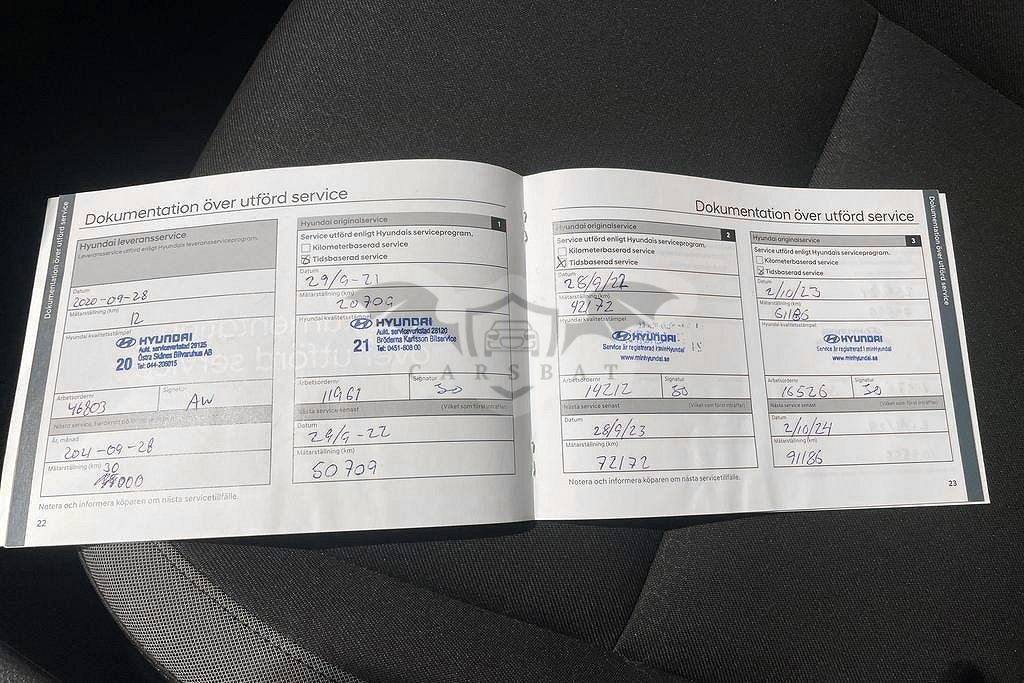 Dokumentation över utförd service
Dokumentation över utförd service
Hyundai leveransservice
Leveransservice utförd enligt Hyundais leveransserviceprogram.
Datum
2020-09-28
Mätarställning (km)
12
Hyundai kvalitetsstämpel
HYUNDAI
Aukt. serviceverkstad 29125
20 Östra Skånes Bilvaruhus AB
Tel: 044-206015
Arbetsordernr
46803
Signatur
AW
År, månad
2021-09-28
Mätarställning (km)
30
000
Notera och informera köparen om nästa servicetillfälle.
22
Hyundai originalservice 1
Service utförd enligt Hyundais serviceprogram.
Kilometerbaserad service
Tidsbaserad service
Datum
29/9-21
Mätarställning (km)
20709
Hyundai kvalitetsstämpel
HYUNDAI
Aukt. serviceverkstad 28120
21 Bröderna Karlsson Bilservice
Tel: 0451-808 00
Arbetsordernr
11961
Signatur
SO
Nästa service senast (Vilket som först inträffar)
Datum
29/9-22
Mätarställning (km)
50709
Dokumentation över utförd service
Dokumentation över utförd service
Hyundai originalservice 2
Service utförd enligt Hyundais serviceprogram.
Kilometerbaserad service
Tidsbaserad service
Datum
28/9/22
Mätarställning (km)
42172
Hyundai kvalitetsstämpel
HYUNDAI
Service är registrerad i minHyundai
www.minhyundai.se
Arbetsordernr
14212
Signatur
SO
Nästa service senast (Vilket som först inträffar)
Datum
28/9/23
Mätarställning (km)
72172
Notera och informera köparen om nästa servicetillfälle.
Hyundai originalservice 3
Service utförd enligt Hyundais serviceprogram.
Kilometerbaserad service
Tidsbaserad service
Datum
2/10/23
Mätarställning (km)
61186
Hyundai kvalitetsstämpel
HYUNDAI
Service är registrerad i minHyundai
www.minhyundai.se
Arbetsordernr
16526
Signatur
SO
Nästa service senast (Vilket som först inträffar)
Datum
2/10/24
Mätarställning (km)
91186
23
CARSBAT